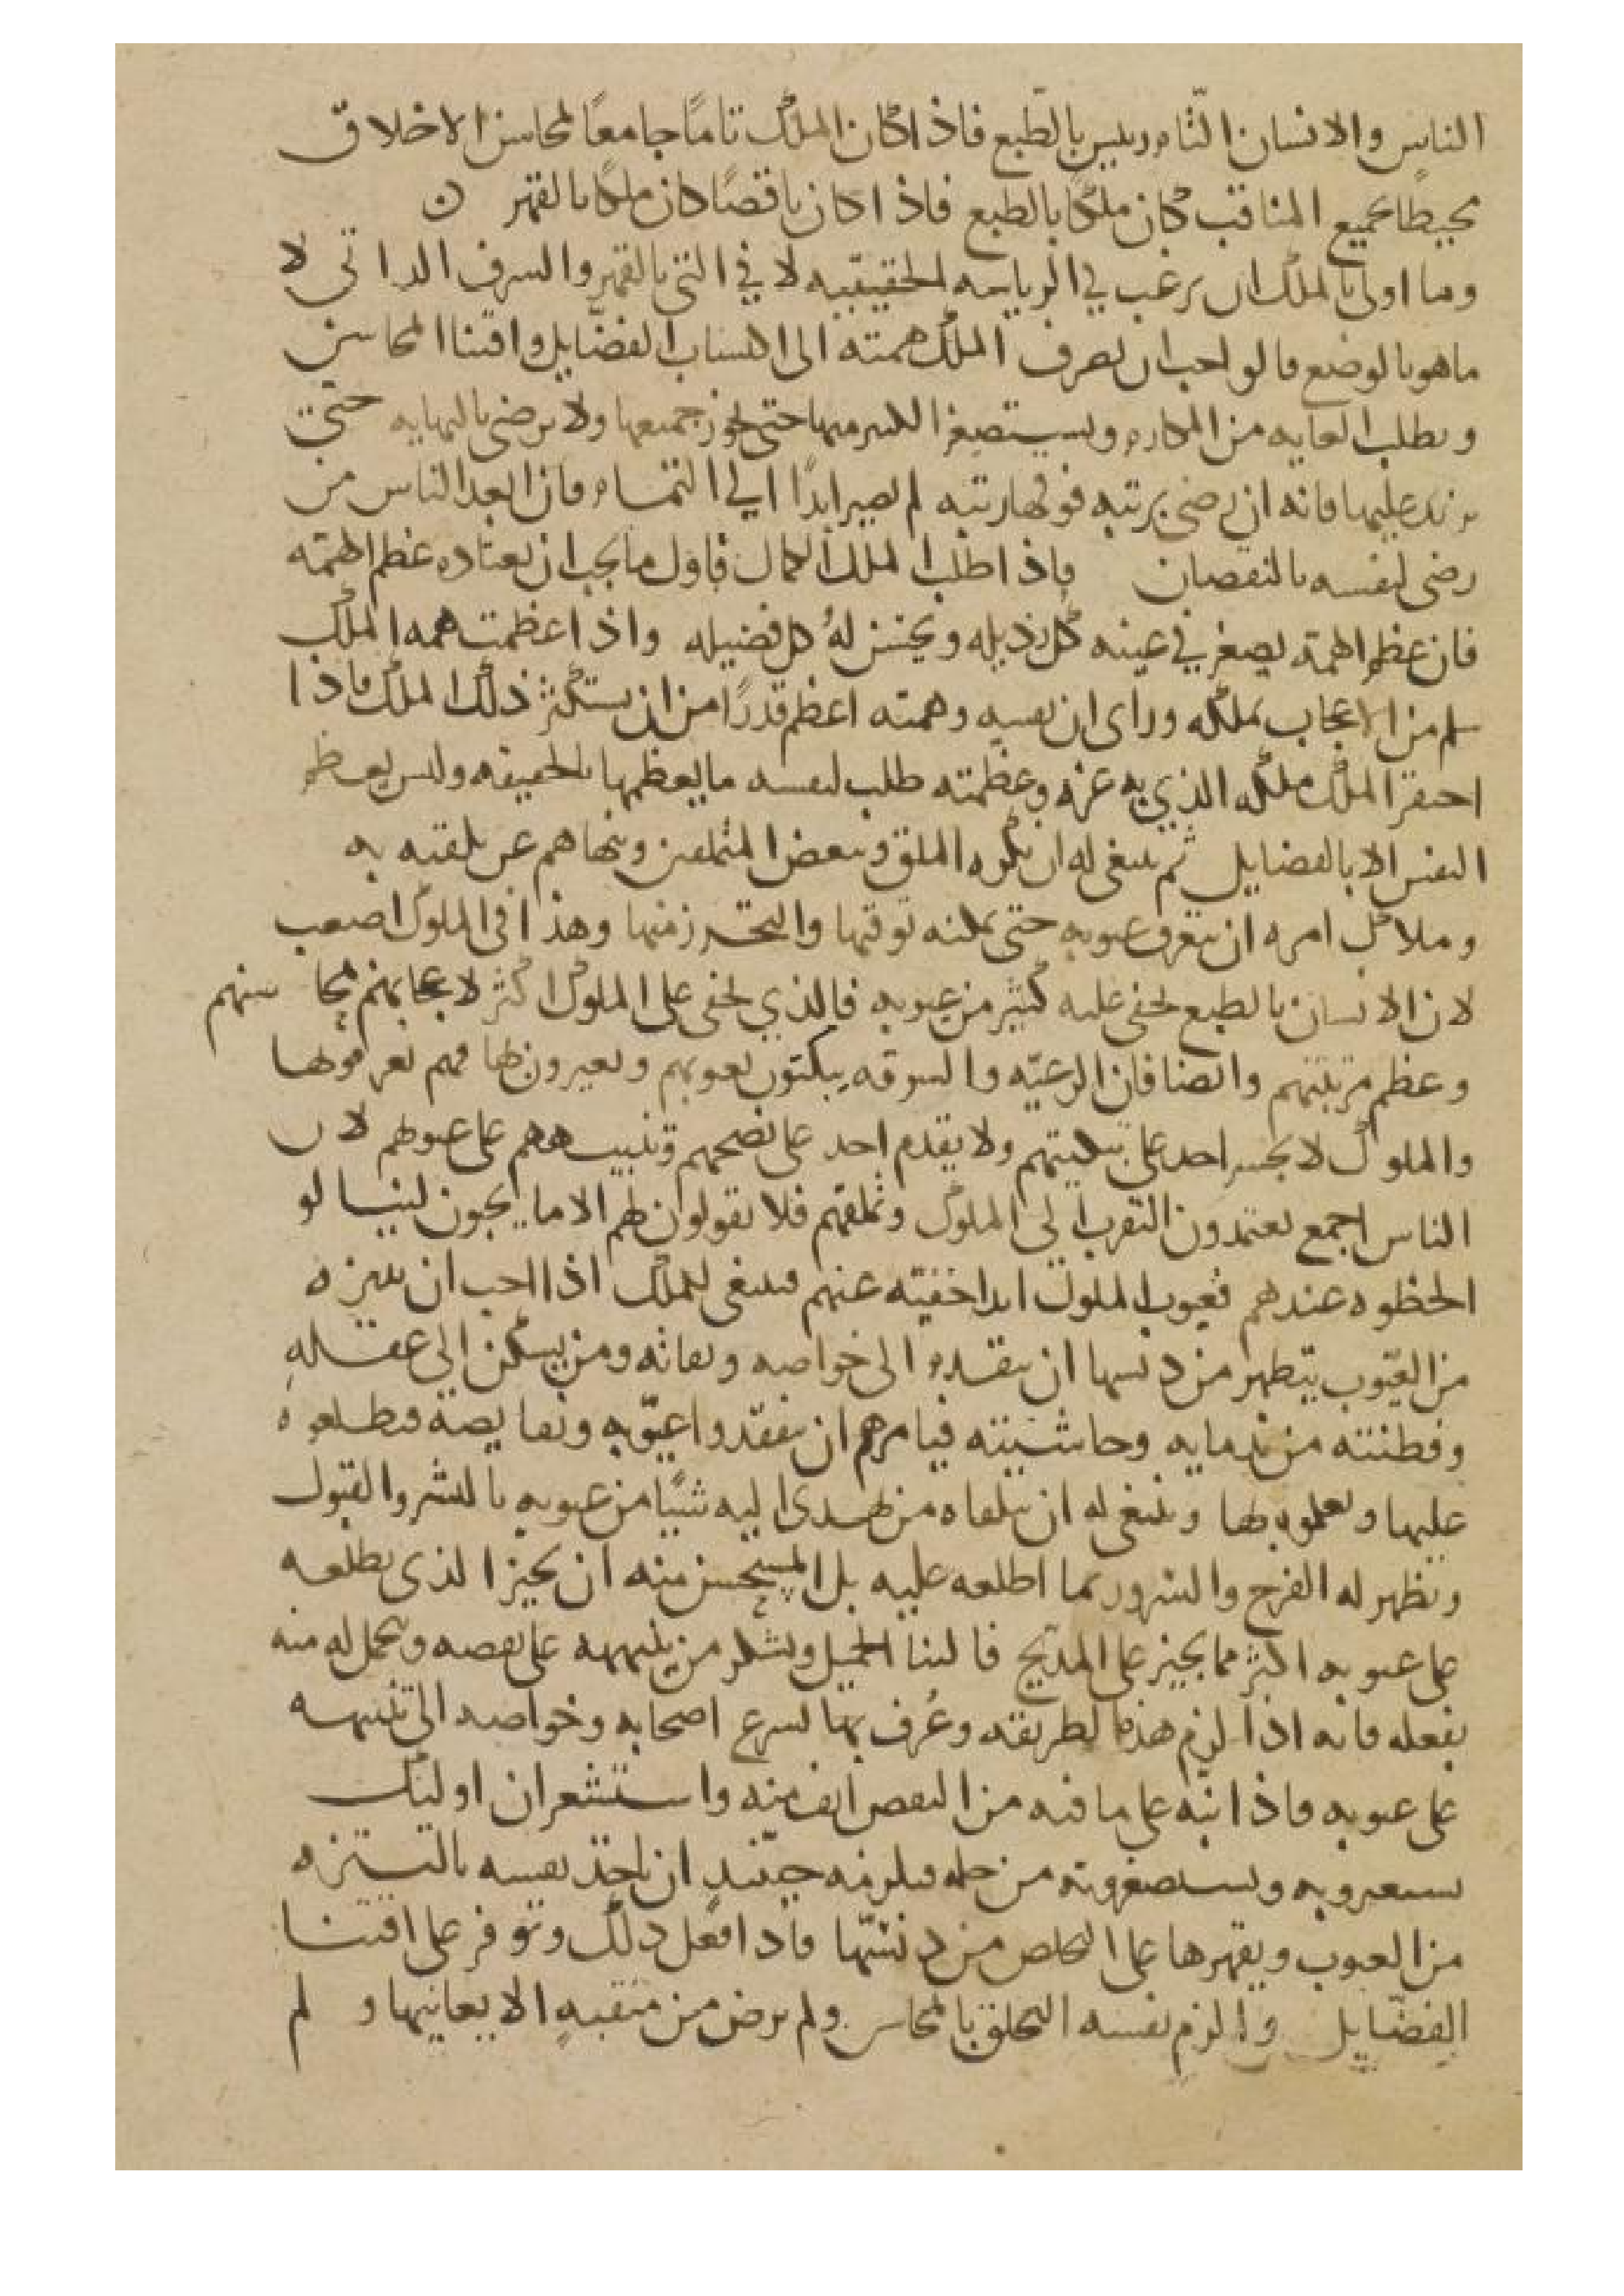 الناس والانسان التّام رييس بالطّبع فاذا كان الملك تامًا جامعًا لمحاسن الاخلاق
محيطًا بجميع المناقب كان ملكًا بالطبع فاذا كان ناقصًا كان ملكا بالقهر ن
وما اولى بالملك ان يرغب في الرياسه الحقيقيه لا في التي بالقهر والشرف الذاتي لا
ما هو بالوضع فالواجب ان يصرف الملك همته الى اكتساب الفضايل واقتنا المحاسن
ويطلب الغايه من المكارم ويستصغر الكبير منها حتى يحوز جميعها ولا يرضى بالنهايه حتى
يزيد عليها فانه ان رضى برتبه فوقها رتبه لم يصير ابدًا الي التمام فان ابعد الناس من
رضى لنفسه بالنقصان فاذا طلب الملك الكمال فاول ما يجب ان يعتاده عظم الهمته
فان عظم الهمة يصغر في عينه كل رذيله ويحسن لهُ كل فضيله واذا عظمت همه الملك
سلم من الاعجاب بملكه وراى ان نفسه وهمته اعظم قدرًا من ان يستكثر ذلك الملك فاذا
احتقر الملك ملكه الذي به عزه وعظمته طلب لنفسه ما يعظمها بالحقيقه وليس يعظم
النفس الا بالفضايل ثم ينبغى له ان يكره الملق وببغض المتملقين وينهاهم عن تلقيه به
وملاك امره ان يتعرف عيوبه حتى يمكنه توقيها والتحرز منها وهذا في الملوك اصعب
لان الانسان بالطبع يخفى عليه كثير من عيوبه فالذي يخفى على الملوك اكثر لاعجابهم بمحاسنهم
وعظم مرتبتهم وايضا فان الرعيّه والسوقه يبكتون بعيوبهم ويعيرون بها فهم يعرفونها
والملوك لا يجسر احد على تبكيتهم ولا يقدم احد على نصحهم وتنبيههم على عيوبهم لان
الناس اجمع يعتمدون التقرب الى الملوك وتملقهم فلا يقولون لهم الا ما يحبون لينالو
الحظوه عندهم فعيوب الملوك ابدا خفيّه عنهم فينبغى للملك اذا احب ان يتنزه
من العيوب يتطهر من دنسها ان يتقدم الى خواصه وثقاته ومن يسكن الى عقله
وفطنته من ندمايه وحاشيته فيامرهم ان يتفقدوا عيوبه ونقايصه فيطلعوه
عليها ويعلموه بها وينبغى له ان يتلقاه من يهدى اليه شيًا من عيوبه بالبشر والقبول
ويظهر له الفرح والسرور بما اطلعه عليه بل المستحسن منه ان يجيز الذى يطلعه
على عيوبه اكثر مما يجيز على المديح فالثنا الجميل ويشكر من ينبهه على نقصه ويتحمل له منه
بفعله فانه اذا لزم هذه الطريقه وعُرف بها يسرع اصحابه وخواصه الى تنبيهه
على عيوبه فاذا نبّه على ما فيه من النقص انف منه واستشعر ان اوليك
سيعيرونه ويستصغرونه من اجله فيلزمه حينيذٍ ان ياخذ نفسه بالتنزه
من العيوب ويقهرها على التخلص من دنسها فاذا فعل ذلك وتوفر على اقتنا
الفضايل والزم نفسه التخلق بالمحاسن ولم يرض من منقبهٍ الا بغايتها و لم